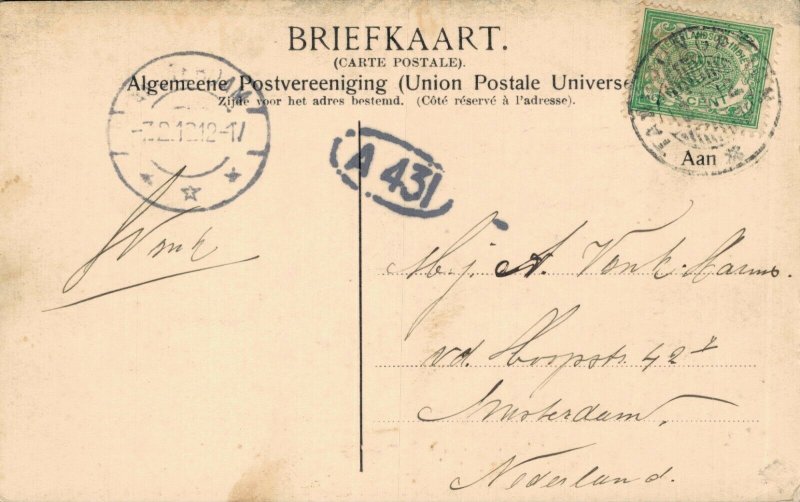 BRIEFKAART.
(CARTE POSTALE).
Algemeene Postvereeniging (Union Postale Universe
Zijde voor het adres bestemd. (Côté réservé à l'adresse).
CENT
Aan
A 431
Vonk
Mej. A. Vonk.
v.d. Hoopstr. 42 I
Amsterdam.
Nederland.